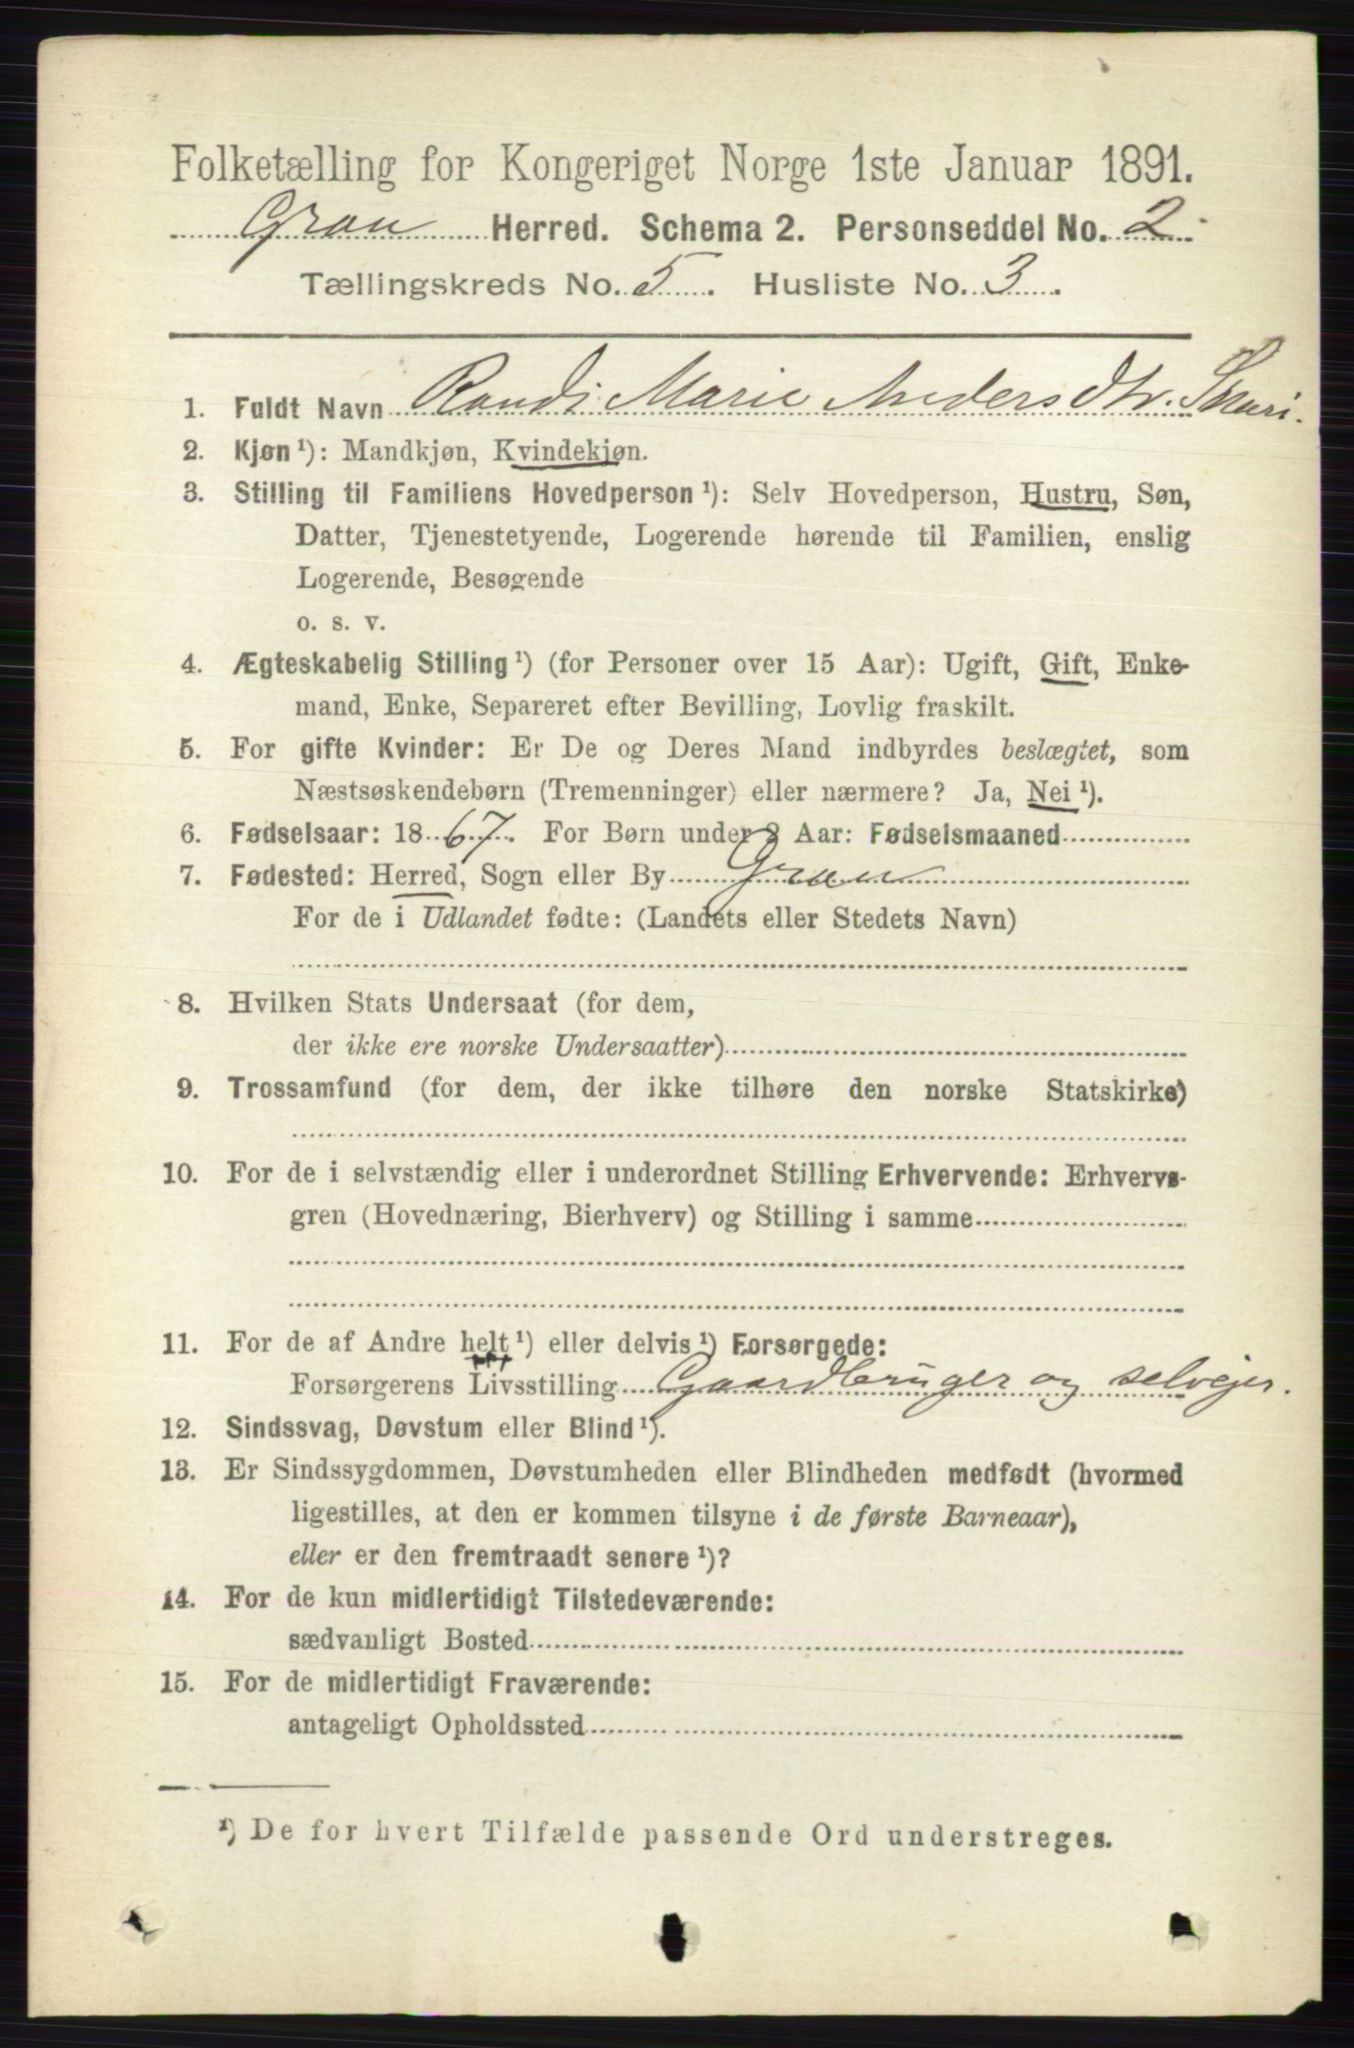 Folketælling for Kongeriget Norge 1ste Januar 1891.
Gran Herred. Schema 2. Personseddel No. 2.
Tællingskreds No. 5. Husliste No. 3.
1. Fuldt Navn Randi Marie Andersdtr.
2. Kjøn ¹): Mandkjøn, Kvindekjøn.
3. Stilling til Familiens Hovedperson ¹): Selv Hovedperson, Hustru, Søn,
Datter, Tjenestetyende, Logerende hørende til Familien, enslig
Logerende, Besøgende
o. s. v.
4. Ægteskabelig Stilling ¹) (for Personer over 15 Aar): Ugift, Gift, Enke-
mand, Enke, Separeret efter Bevilling, Lovlig fraskilt.
5. For gifte Kvinder: Er De og Deres Mand indbyrdes beslægtet, som
Næstsøskendebørn (Tremenninger) eller nærmere? Ja, Nei ¹).
6. Fødselsaar: 1867. For Børn under 2 Aar: Fødselsmaaned
7. Fødested: Herred, Sogn eller By Gran
For de i Udlandet fødte: (Landets eller Stedets Navn)
8. Hvilken Stats Undersaat (for dem,
der ikke ere norske Undersaatter)
9. Trossamfund (for dem, der ikke tilhøre den norske Statskirke)
10. For de i selvstændig eller i underordnet Stilling Erhvervende: Erhvervs-
gren (Hovednæring, Bierhverv) og Stilling i samme
11. For de af Andre helt ¹) eller delvis ¹) Forsørgede:
Forsørgerens Livsstilling Gaardbruger og selvejer.
12. Sindssvag, Døvstum eller Blind ¹).
13. Er Sindssygdommen, Døvstumheden eller Blindheden medfødt (hvormed
ligestilles, at den er kommen tilsyne i de første Barneaar),
eller er den fremtraadt senere ¹)?
14. For de kun midlertidigt Tilstedeværende:
sædvanligt Bosted
15. For de midlertidigt Fraværende:
antageligt Opholdssted
¹) De for hvert Tilfælde passende Ord understreges.